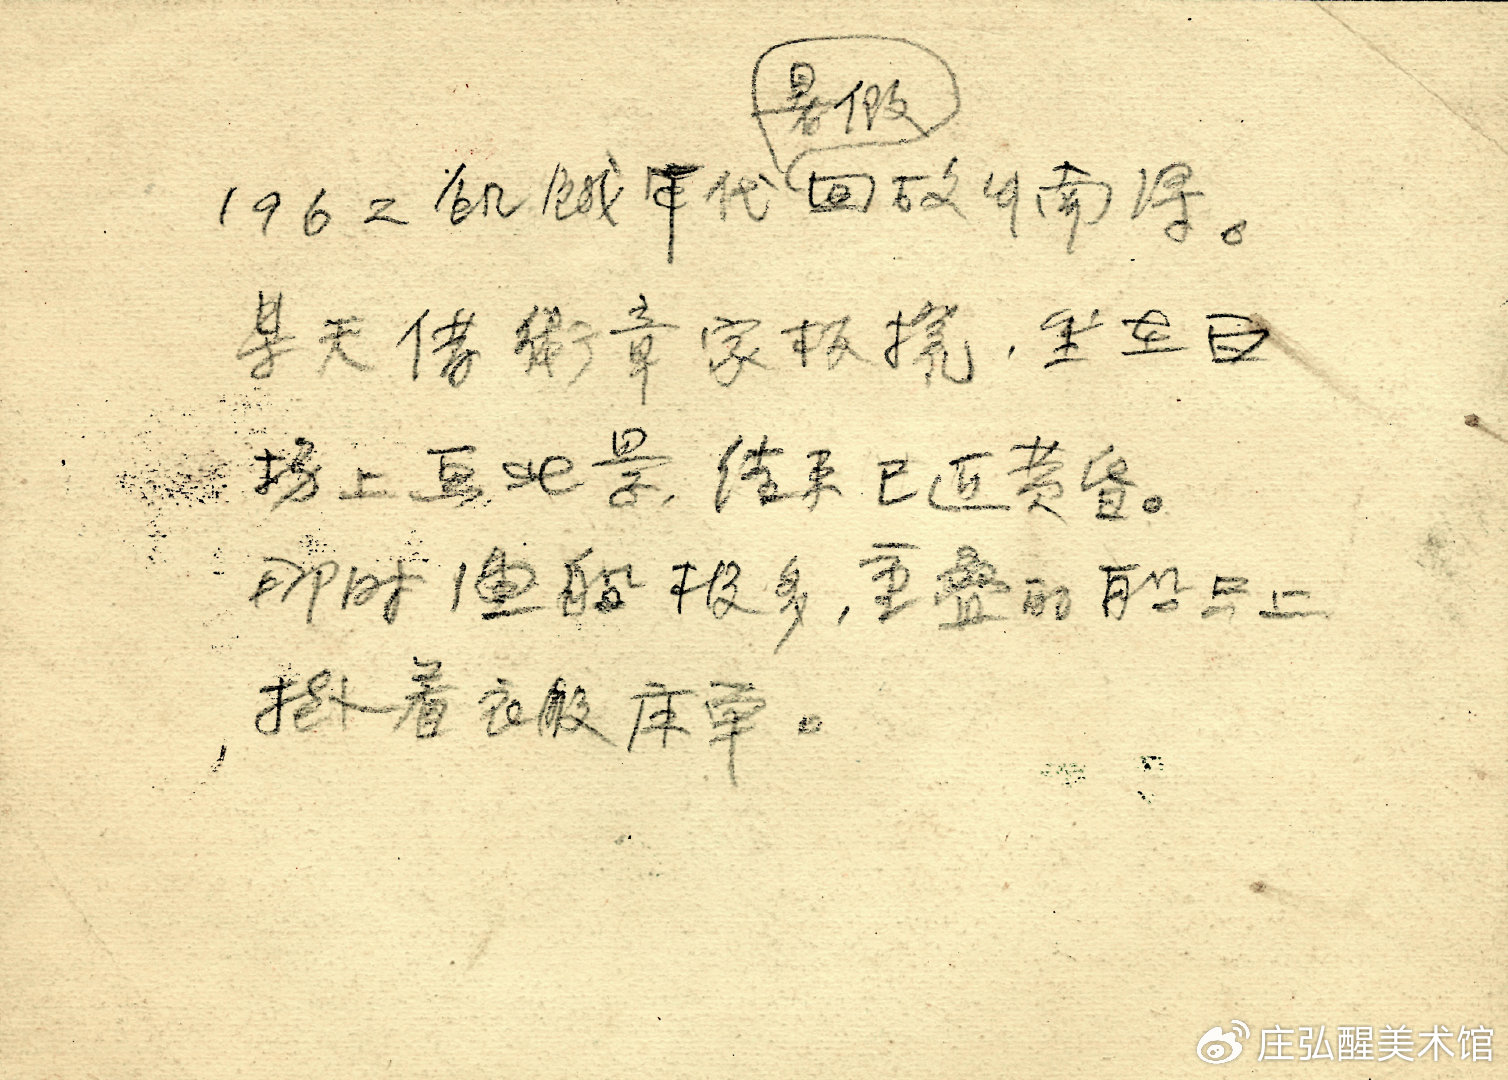 1962饥饿年代暑假回故乡南浔。
某天借衛章家板撓,坐在白
场上画此景,结束已近黄昏。
那时渔船极多,重叠的船只上
挑着衣服床单。
庄弘醒美术馆